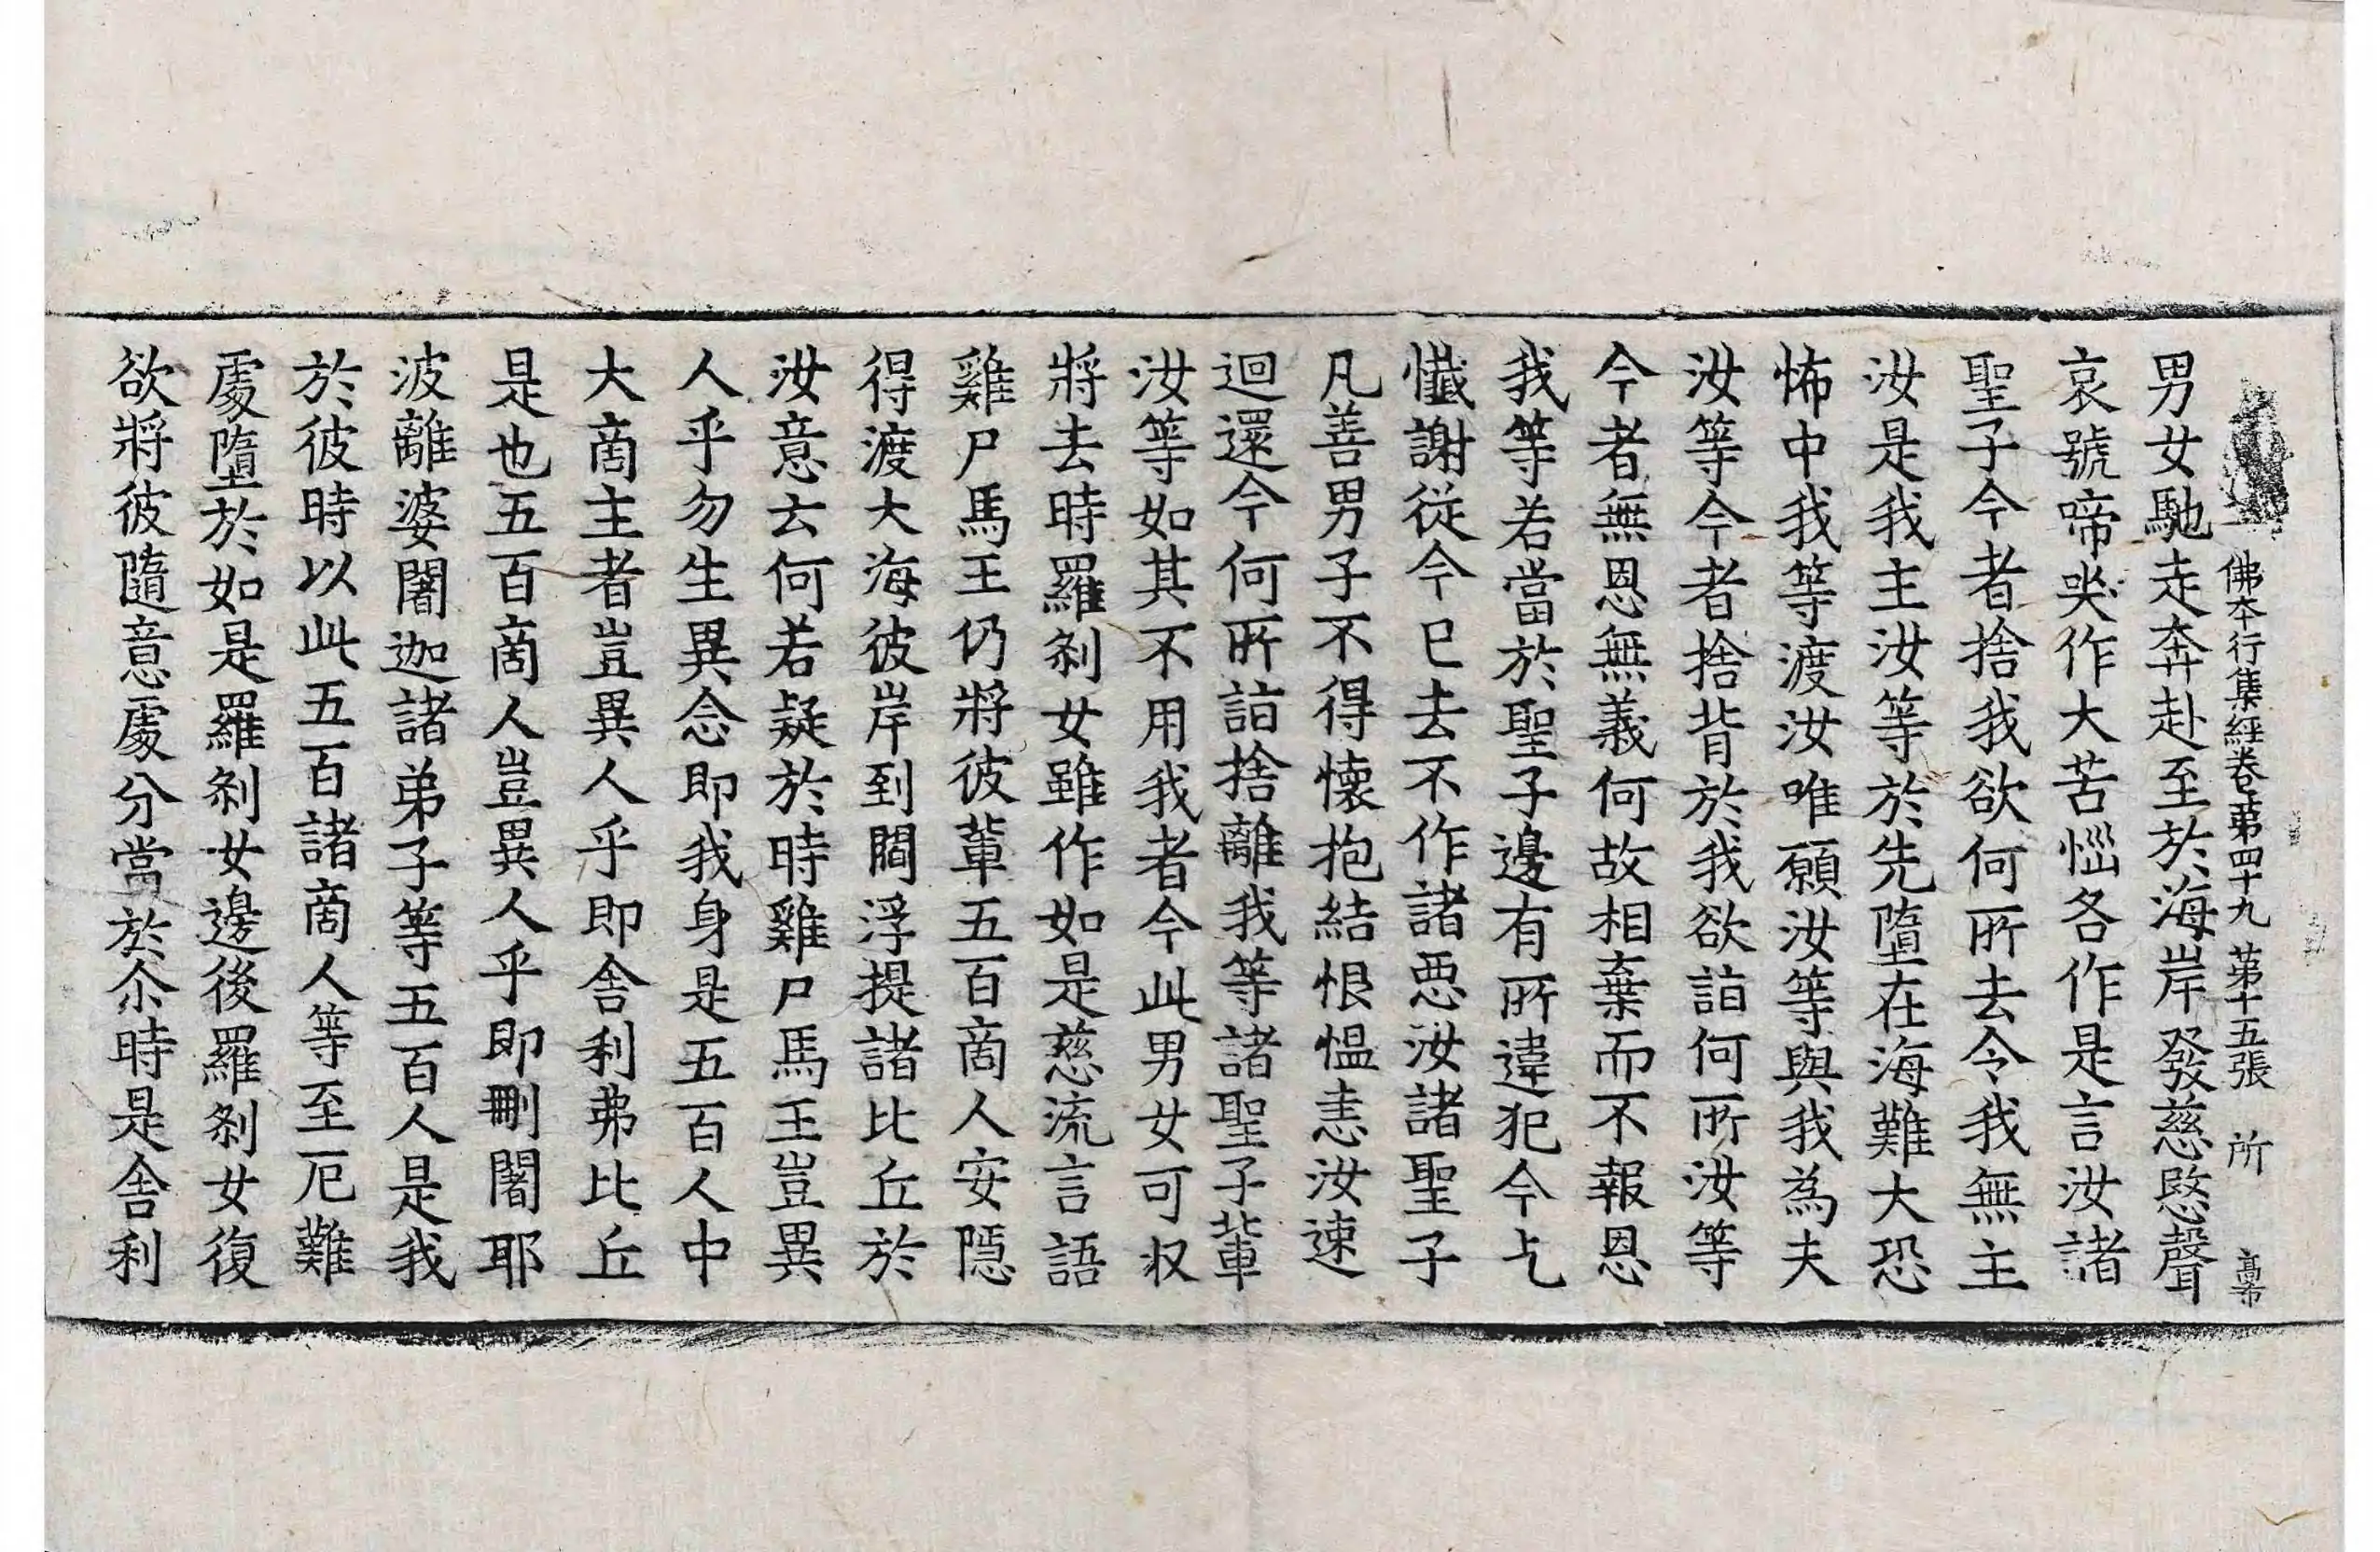 佛本行集經卷第四十九 第十五張 所
男女馳走奔赴至於海岸發慈愍聲
哀號啼哭作大苦惱各作是言汝諸
聖子今者捨我欲何所去令我無主
汝是我主汝等於先墮在海難大恐
怖中我等渡汝唯願汝等與我為夫
汝等今者捨背於我欲詣何所汝等
今者無恩無義何故相棄而不報恩
我等若當於聖子邊有所違犯今乞
懺謝從今已去不作諸惡汝諸聖子
凡善男子不得懷抱結恨慍恚汝速
迴還今何所詣捨離我等諸聖子輩
汝等如其不用我者今此男女可收
將去時羅剎女雖作如是慈流言語
雞尸馬王仍將彼輩五百商人安隱
得渡大海彼岸到閻浮提諸比丘於
汝意云何若疑於時雞尸馬王豈異
人乎勿生異念即我身是五百人中
大商主者豈異人乎即舍利弗比丘
是也五百商人豈異人乎即刪闍耶
波離婆闍迦諸弟子等五百人是我
於彼時以此五百諸商人等至厄難
處墮於如是羅剎女邊後羅剎女復
欲將彼隨意處分當於尒時是舍利